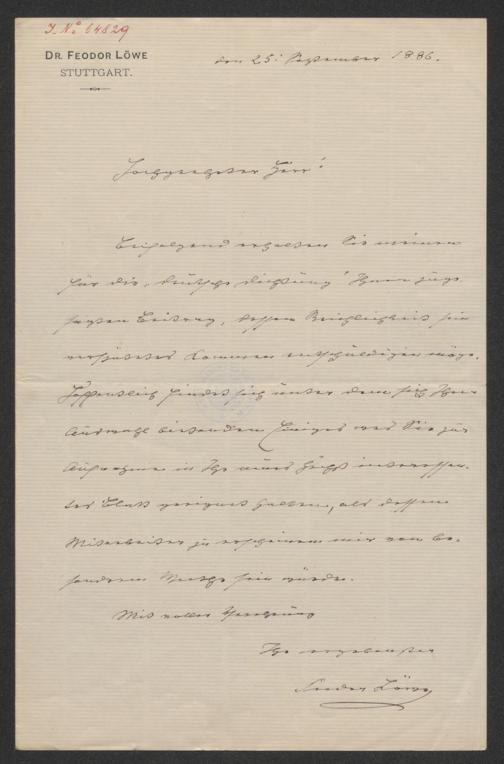 J. No 64829
DR. FEODOR LÖWE
STUTTGART.
den 25. September 1886.
Hochgeehrter Herr!
Beifolgend erhalten Sie meinen
für die "Deutsche Dichtung" Ihnen zuge-
sagten Beitrag, dessen Reichlichkeit sein
verspätetes Kommen entschuldigen möge.
Hoffentlich findet sich unter dem sich Ihrer
Auswahl bietenden Einiges was Sie zur
Aufnahme in Ihr neues höchst interessan-
tes Blatt geeignet halten, als dessen
Mitarbeiter zu erscheinen mir von be-
sonderem Werthe sein würde.
Mit voller Verehrung
Ihr ergebenster
Feodor Löwe